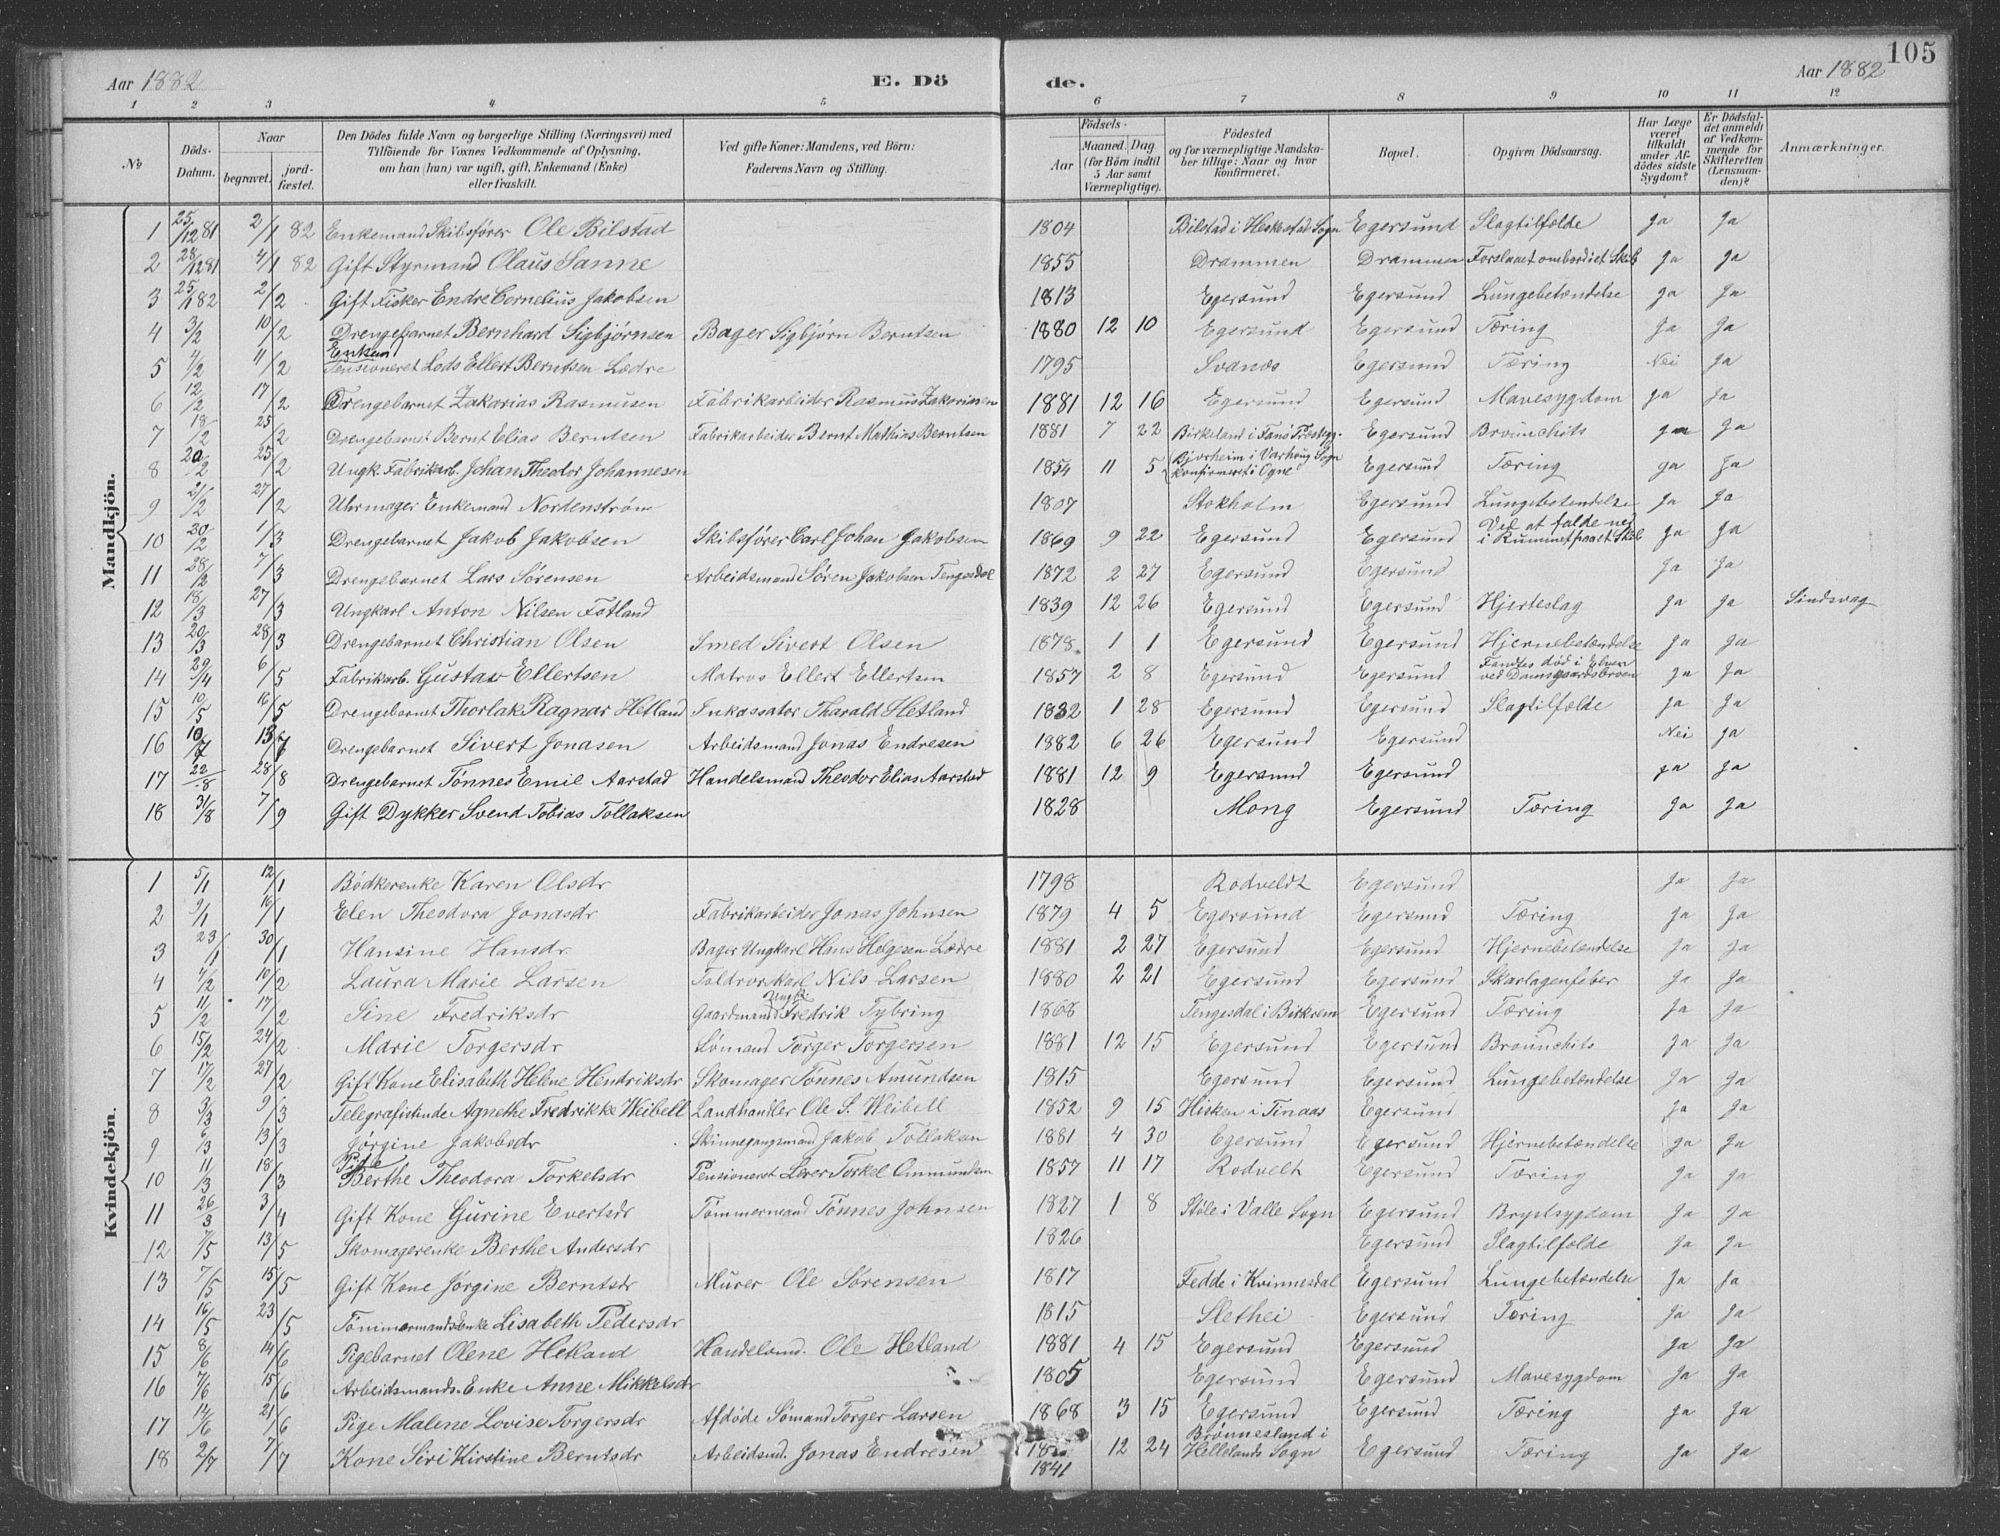 105
Aar 1882 E. Dö de. Aar 1882
1 2 3 4 5 6 7 8 9 10 11 12
№ Döds-Datum. Naar begravet. jord-fæstet. Den Dödes fulde Navn og borgerlige Stilling (Næringsvei) med Tilföiende for Voxnes Vedkommende af Oplysning, om han (hun) var ugift, gift, Enkemand (Enke) eller fraskilt. Ved gifte Koner: Mandens, ved Börn: Faderens Navn og Stilling. Födsels- Aar Maaned. Dag. (for Börn indtil 5 Aar samt Værnepligtige). Födested og for værnepligtige Mandskaber tillige: Naar og hvor konfirmeret. Bopæl. Opgiven Dödsaarsag. Har Læge været tilkaldt under Afdödes sidste Sygdom? Er Dödsfaldet anmeldt af Vedkommende for Skifteretten (Lensmanden)? Anmærkninger.
Mandkjön.
1 25/12 81 2/1 82 Enkemand Skibsfører Ole Bilstad 1804 Bilstad i Heskestad Sogn Egersund Slagtilfælde Ja Ja
2 28/12 81 4/1 82 Gift Styrmand Olaus Sanne 1855 Drammen Drammen Forslaaet ombord i et Skib Ja Ja
3 25/1 82 2/2 Gift Fisker Endre Cornelius Jakobsen 1813 Egersund Egersund Lungebetændelse Ja Ja
4 3/2 10/2 Drengebarnet Bernhard Sigbjørnsen Bager Sigbjørn Berntsen 1880 12 10 Egersund Egersund Tæring Ja Ja
Enkem
5 4/2 Pensioneret Lods Ellert Berntsen Lædre 1795 Svanæs Egersund Tæring Nei Ja
6 12/2 17/2 Drengebarnet Zakarias Rasmusen Fabrikarbeider Rasmus Zakariasen 1881 12 16 Egersund Egersund Mavesygdom Ja Ja
7 18/2 25/2 Drengebarnet Bernt Elias Berntsen Fabrikarbeider Bernt Mathias Berntsen 1881 7 22 Birkeland i Egersund Brounchits Ja Ja
8 20/2 25/2 Ungk. Fabrikarb. Johan Theodor Johannesen 1854 11 5 Bjorheim i Varhoug Sogn konfirmeret i Ogne Egersund Tæring Ja Ja
9 21/2 27/2 Uhrmager Enkemand Nordenstrøm 1807 Stokholm Egersund Lungebetændelse Ja Ja
10 20/2 1/3 Drengebarnet Jakob Jakobsen Skibsfører Carl Johan Jakobsen 1869 9 22 Egersund Egersund Ved at falde ned i Rummet paa et Skib Ja Ja
11 28/2 7/3 Drengebarnet Lars Sørensen Arbeidsmand Søren Jakobsen Tengesdal 1872 2 27 Egersund Egersund Ja Ja
12 18/3 27/3 Ungkarl Anton Nilsen Fotland 1839 12 26 Egersund Egersund Hjerteslag Ja Ja Sindsvag
13 20/3 28/3 Drengebarnet Christian Olsen Smed Sivert Olsen 1878 1 1 Egersund Egersund Hjernebetændelse Ja Ja
14 29/4 6/5 Fabrikarb. Gustav Ellertsen Matros Ellert Ellertsen 1857 2 8 Egersund Egersund Fandtes død i Elven ved Damsgaardsbroen Ja Ja
15 10/5 16/5 Drengebarnet Thorlak Ragnar Hetland Inkassator Tharald Hetland 1882 1 28 Egersund Egersund Slagtilfælde Ja Ja
16 10/7 13/7 Drengebarnet Sivert Jonasen Arbeidsmand Jonas Endresen 1882 6 26 Egersund Egersund Nei Ja
17 22/8 28/8 Drengebarnet Tønnes Emil Aarstad Handelsmand Theodor Elias Aarstad 1881 12 9 Egersund Egersund Ja Ja
18 31/8 7/9 Gift Dykker Svend Tobias Tollaksen 1828 Mong Egersund Tæring Ja Ja
Kvindekjön.
1 5/1 12/1 Bødkerenke Karen Olsdr 1798 Rodveldt Egersund Ja Ja
2 9/1 16/1 Elen Theodora Jonasdr Fabrikarbeider Jonas Johnsen 1879 4 5 Egersund Egersund Tæring Ja Ja
3 23/1 30/1 Hansine Hansdr Bager Ungkarl Hans Helgesen Lædre 1881 2 27 Egersund Egersund Hjernebetændelse Ja Ja
4 4/2 10/2 Laura Marie Larsen Toldrorskarl Nils Larsen 1880 2 21 Egersund Egersund Skarlagenfeber Ja Ja
5 11/2 17/2 Sine Fredriksdr Gaardmand Fredrik Tybring 1868 Tengesdal i Birkrem Egersund Tæring Ja Ja
6 15/2 24/2 Marie Torgersdr Sømand Torger Torgersen 1881 12 15 Egersund Egersund Brounchits Ja Ja
7 17/2 27/2 Gift Kone Elisabeth Helene Hendriksdr Skomager Tønnes Amundsen 1815 Egersund Egersund Lungebetændelse Ja Ja
8 3/3 9/3 Telegrafistinde Agnethe Fredrikke Weibell Landhandler Ole S. Weibell 1852 9 15 Hisken i Finaas Egersund Ja Ja
9 6/3 13/3 Jørgine Jakobsdr Skinnegangsmand Jakob Tollaksen 1881 4 30 Egersund Egersund Hjernebetændelse Ja Ja
Pige
10 11/3 18/3 Berthe Theodora Torkelsdr Pensioneret Torkel Ommundsen 1857 11 17 Rodvelt Egersund Tæring Ja Ja
11 26/3 3/4 Gift Kone Gurine Evertsdr Tømmermand Tønnes Johnsen 1827 1 8 Støle i Valle Sogn Egersund Brystsygdom Ja Ja
12 7/5 13/5 Skomagerenke Berthe Andersdr 1826 Egersund Slagtilfælde Ja Ja
13 7/5 15/5 Gift Kone Jørgine Berntsdr Murer Ole Sørensen 1817 Fedde i Kvinnesdal Egersund Lungebetændelse Ja Ja
14 16/5 23/5 Tømmermandsenke Lisabeth Pedersdr 1815 Slethei Egersund Tæring Ja Ja
15 8/6 14/6 Pigebarnet Olene Hetland Handelsmd. Ole Hetland 1881 4 15 Egersund Egersund Ja Ja
16 7/6 15/6 Arbeidsmands-Enke Anne Mikkelsdr 1805 Egersund Egersund Mavesygdom Ja Ja
17 14/6 21/6 Pige Malene Lovise Torgersdr Afdøde Sømand Torger Larsen 1868 3 15 Egersund Egersund Tæring Ja Ja
18 2/7 7/7 Kone Siri Kirstine Berntsdr Arbeidsmd. Jonas Endresen 1841 12 24 Brønnesland i Hellelands Sogn Egersund Tæring Ja Ja